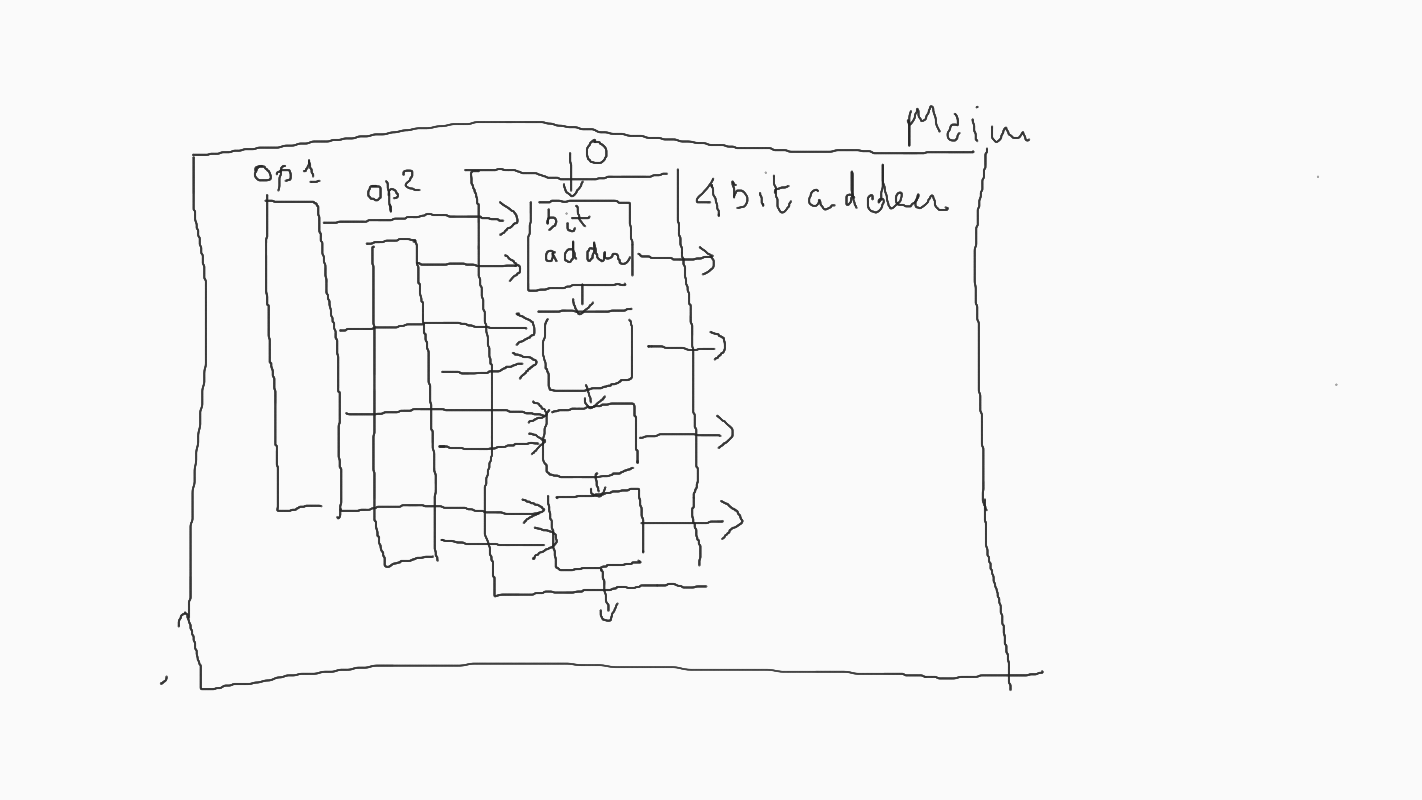 Main
op1
op2
0
4 bit adder
bit
adder